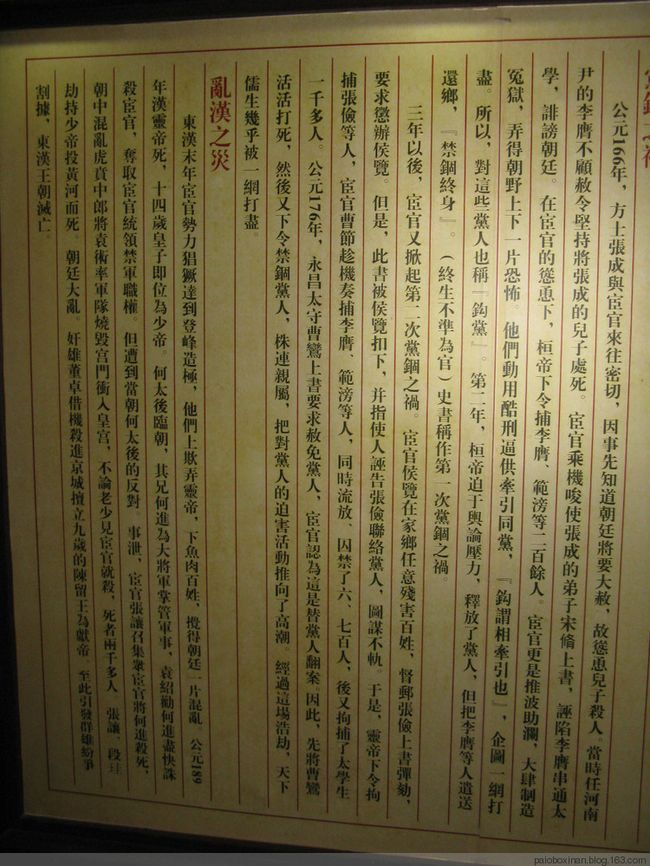 黨錮之禍
公元166年，方士張成與宦官來往密切，因事先知道朝廷將要大赦，故慫恿兒子殺人。當時任河南
尹的李膺不顧赦令堅持將張成的兒子處死。宦官乘機唆使張成的弟子宋脩上書，誣陷李膺串通太
學，誹謗朝廷。在宦官的慫恿下，桓帝下令捕李膺、範滂等二百餘人，宦官更是推波助瀾，大肆制造
冤獄，弄得朝野上下一片恐怖。他們動用酷刑逼供牽引同黨，『鈎謂相牽引也』，企圖一網打
盡。所以，對這些黨人也稱『鈎黨』。第二年，桓帝迫于輿論壓力，釋放了黨人，但把李膺等人遣送
還鄉，『禁錮終身』。（終生不準為官）史書稱作第一次黨錮之禍
三年以後，宦官又掀起第二次黨錮之禍。宦官侯覽在家鄉任意殘害百姓，督郵張儉上書彈劾，
要求懲辦侯覽。但是，此書被侯覽扣下，并指使人誣告張儉聯絡黨人，圖謀不軌。于是，靈帝下令拘
捕張儉等人，宦官曹節趁機奏捕李膺、範滂等人，同時流放、囚禁了六、七百人，後又拘捕了太學生
一千多人。公元176年，永昌太守曹鸞上書要求赦免黨人，宦官認為這是替黨人翻案。因此，先將曹鸞
活活打死，然後又下令禁錮黨人，株連親屬，把對黨人的迫害活動推向了高潮。經過這場浩劫，天下
儒生幾乎被一網打盡。
亂漢之災
東漢末年宦官勢力猖獗達到登峰造極，他們上欺弄靈帝，下魚肉百姓，攪得朝廷一片混亂。公元189
年漢靈帝死，十四歲皇子即位為少帝。何太後臨朝，其兄何進為大將軍掌管軍事，袁紹勸何進盡快誅
殺宦官，奪取宦官統領禁軍職權，但遭到當朝何太後的反對，事泄，宦官張讓召集衆宦官將何進殺死，
朝中混亂虎賁中郎將袁術率軍隊燒毀宮門衝入皇宮，不論老少見宦官就殺，死者兩千多人，張讓、段珪
劫持少帝投黃河而死。朝廷大亂。奸雄董卓借機殺進京城擅立九歲的陳留王為獻帝，至此引發群雄紛爭
割據，東漢王朝滅亡。
paioboxinan.blog.163.com